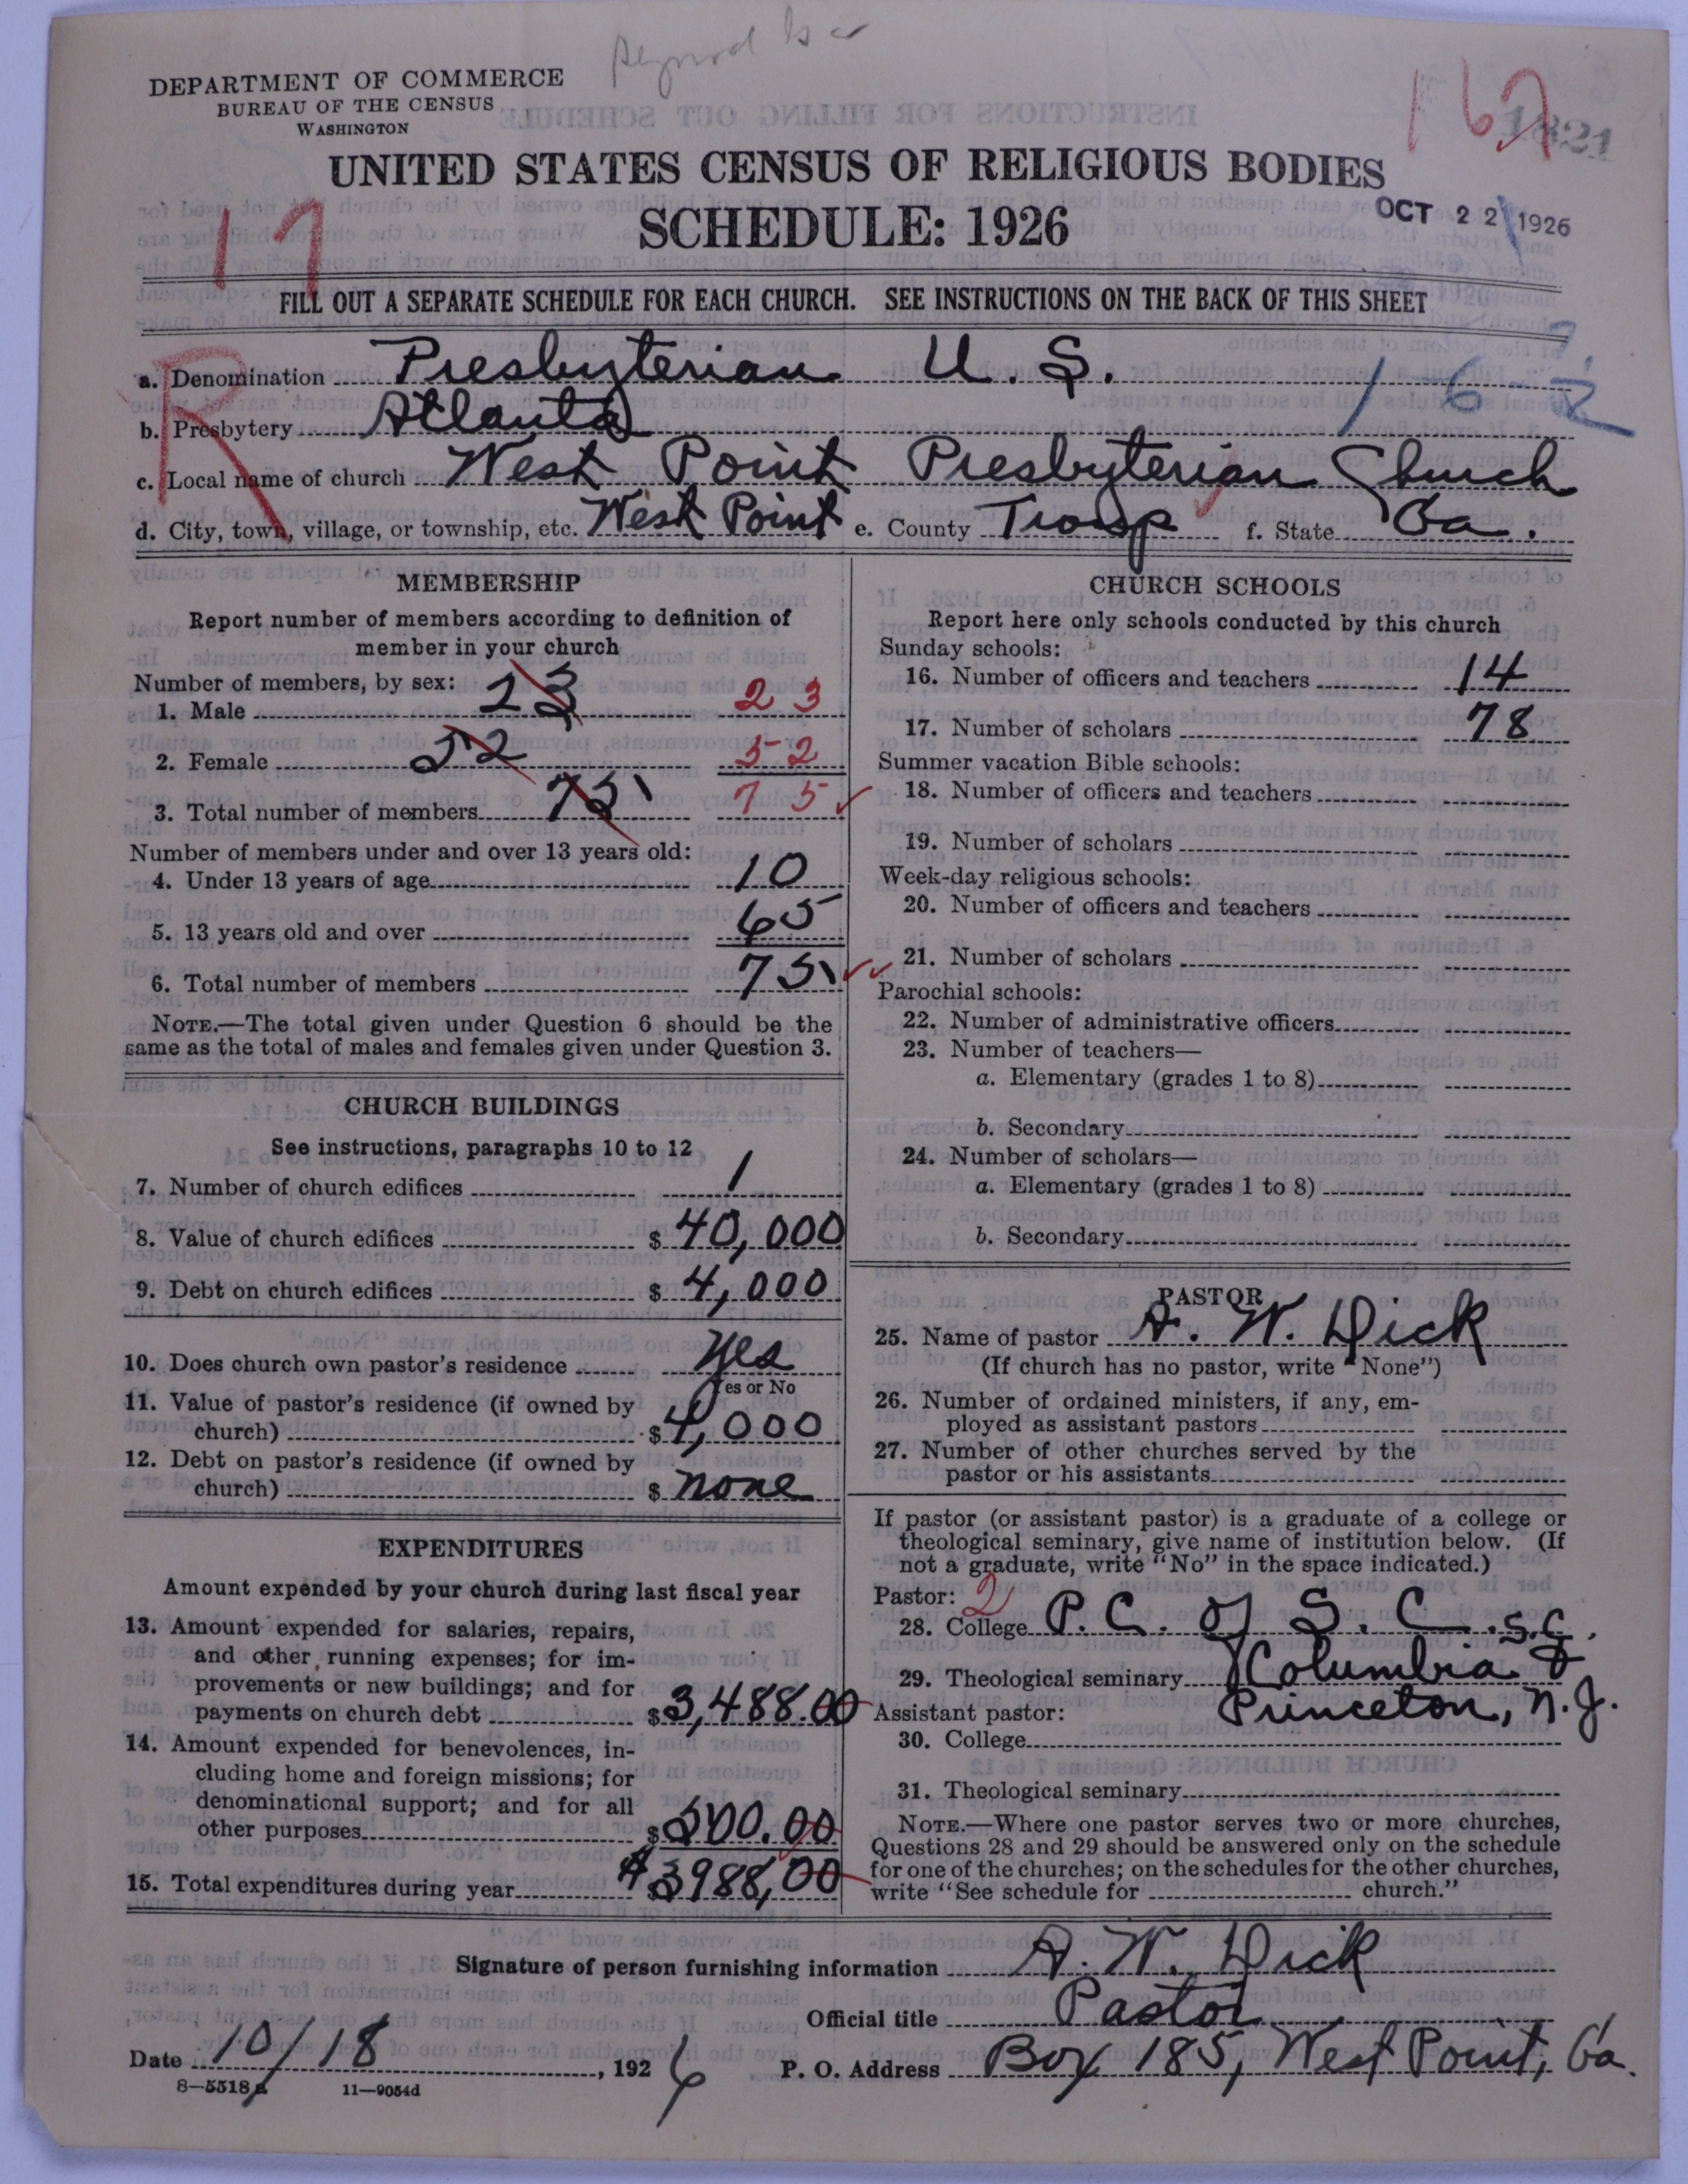 DEPARTMENT OF COMMERCE
BUREAU OF THE CENSUS
WASHINGTON
162
1821
UNITED STATES CENSUS OF RELIGIOUS BODIES
SCHEDULE: 1926
OCT 22 1926
17
FILL OUT A SEPARATE SCHEDULE FOR EACH CHURCH. SEE INSTRUCTIONS ON THE BACK OF THIS SHEET
R
a. Denomination Presbyterian U. S.
162
b. Presbytery Atlanta
c. Local name of church West Point Presbyterian Church
d. City, town, village, or township, etc. West Point e. County Troup f. State Ga.
MEMBERSHIP
Report number of members according to definition of
member in your church
Number of members, by sex:
1. Male 23 23
2. Female 52 52
3. Total number of members 75 75
Number of members under and over 13 years old:
4. Under 13 years of age 10
5. 13 years old and over 65
6. Total number of members 75
NOTE.—The total given under Question 6 should be the
same as the total of males and females given under Question 3.
CHURCH BUILDINGS
See instructions, paragraphs 10 to 12
7. Number of church edifices 1
8. Value of church edifices $ 40,000
9. Debt on church edifices $ 4,000
10. Does church own pastor's residence Yes
Yes or No
11. Value of pastor's residence (if owned by
church) $ 4,000
12. Debt on pastor's residence (if owned by
church) $ none
EXPENDITURES
Amount expended by your church during last fiscal year
13. Amount expended for salaries, repairs,
and other running expenses; for im-
provements or new buildings; and for
payments on church debt $ 3,488.00
14. Amount expended for benevolences, in-
cluding home and foreign missions; for
denominational support; and for all
other purposes $ 500.00
15. Total expenditures during year $ $3988,00
CHURCH SCHOOLS
Report here only schools conducted by this church
Sunday schools:
16. Number of officers and teachers 14
17. Number of scholars 78
Summer vacation Bible schools:
18. Number of officers and teachers
19. Number of scholars
Week-day religious schools:
20. Number of officers and teachers
21. Number of scholars
Parochial schools:
22. Number of administrative officers
23. Number of teachers—
a. Elementary (grades 1 to 8)
b. Secondary
24. Number of scholars—
a. Elementary (grades 1 to 8)
b. Secondary
PASTOR
25. Name of pastor A. W. Dick
(If church has no pastor, write "None")
26. Number of ordained ministers, if any, em-
ployed as assistant pastors
27. Number of other churches served by the
pastor or his assistants
If pastor (or assistant pastor) is a graduate of a college or
theological seminary, give name of institution below. (If
not a graduate, write "No" in the space indicated.)
Pastor: 2
28. College P. C. of S. C. S.C.
29. Theological seminary Columbia &
Assistant pastor: Princeton, N.J.
30. College
31. Theological seminary
NOTE.—Where one pastor serves two or more churches,
Questions 28 and 29 should be answered only on the schedule
for one of the churches; on the schedules for the other churches,
write "See schedule for church."
Signature of person furnishing information A. W. Dick
Official title Pastor
Date 10/18, 1926 P. O. Address Box 185, West Point, Ga.
8—5518a 11—9054d